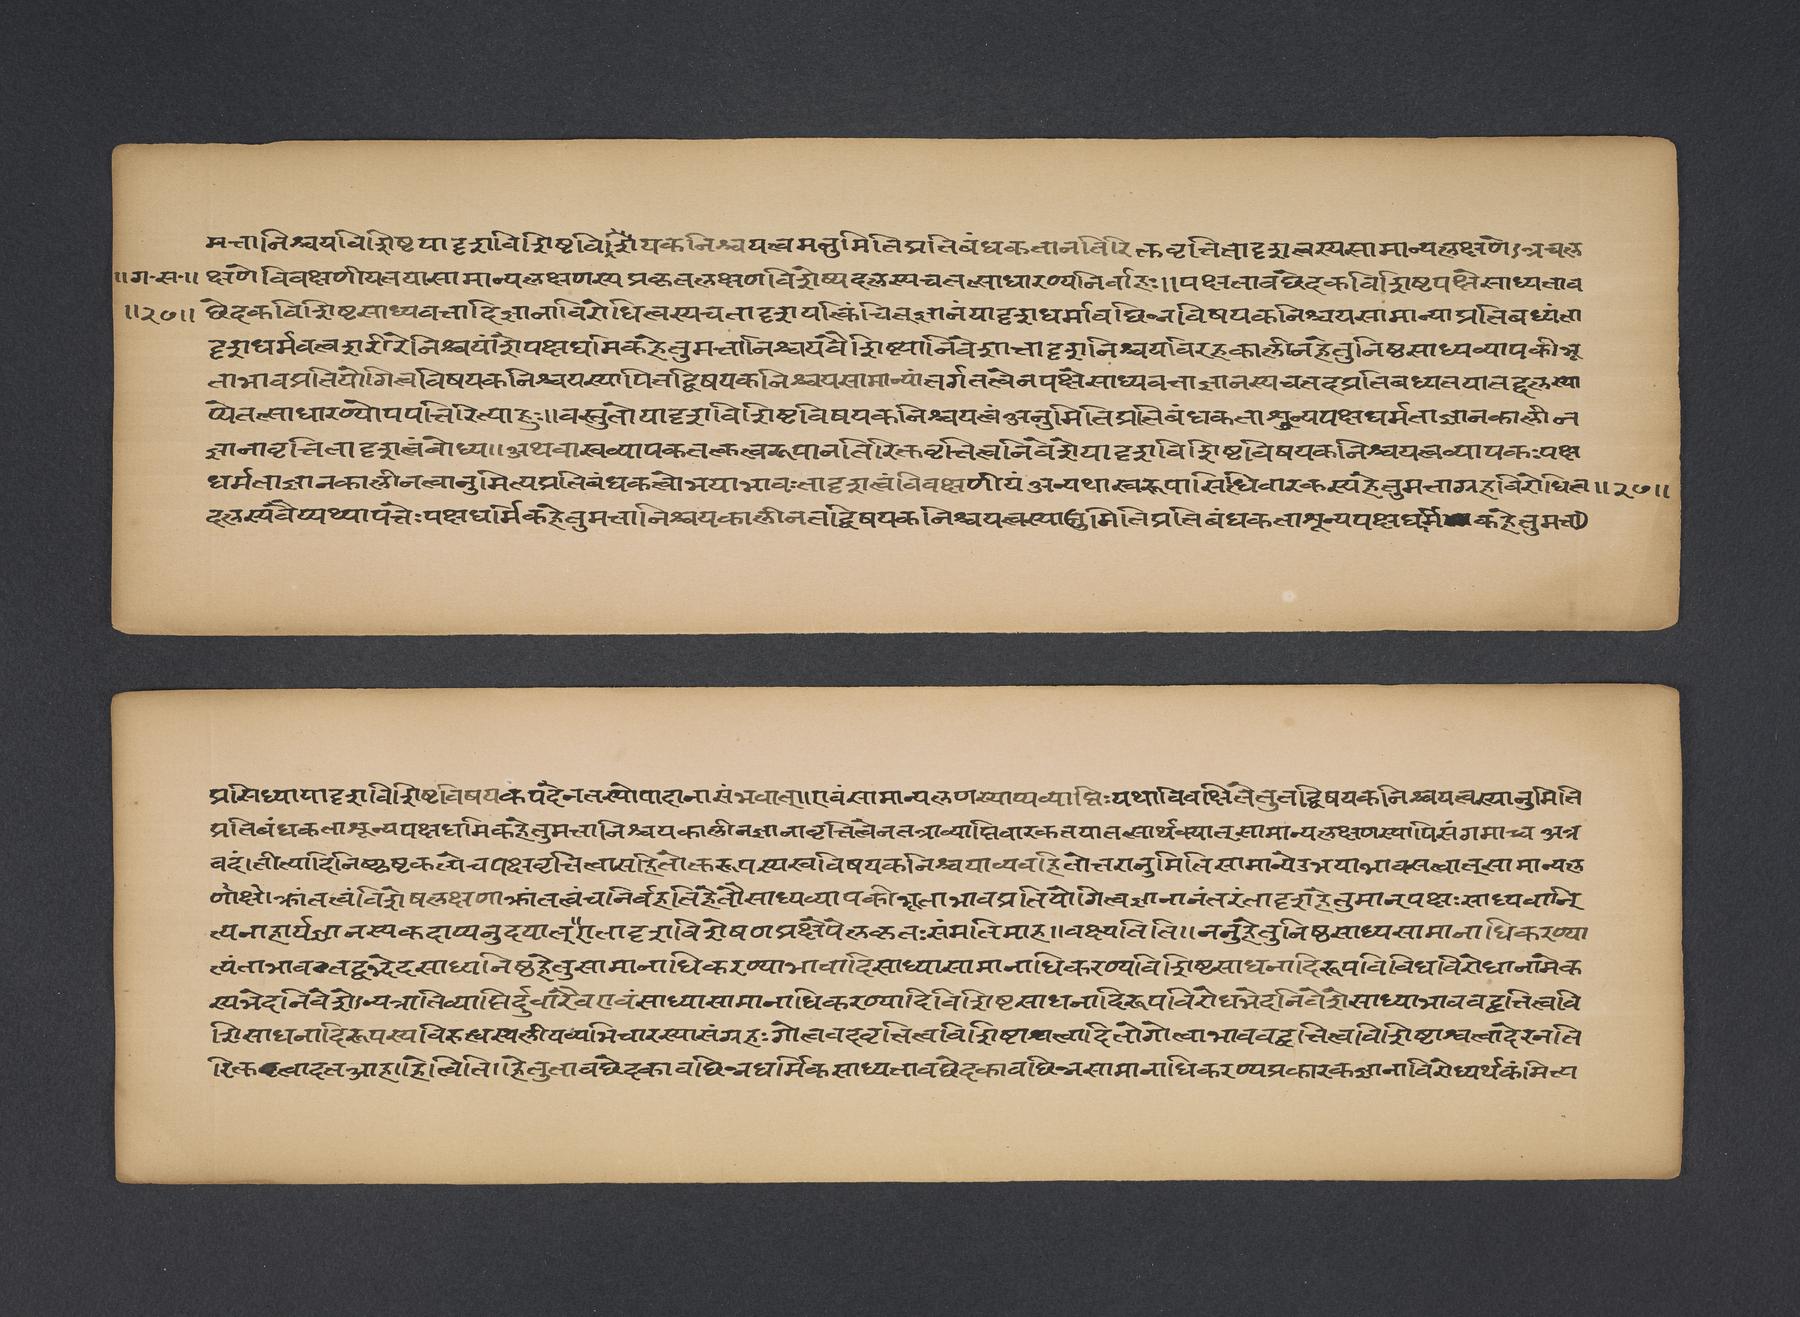 मत्तानिश्चयविशिष्टयादृशविशिष्टविशेयकनिश्चयत्वमनुमितिप्रतिबंधकतानतिरिक्तवृत्तितादृशत्वस्यसामान्यलक्षणेऽत्रचल
॥ग॰स॰॥ क्षणेविवक्षणीयतयासामान्यलक्षणस्यप्रकृतलक्षणविशेष्यदलस्यचतत्साधारण्यनिर्वाहः॥पक्षतावछेदकविशिष्टपक्षेसाध्यताव
॥२७॥ छेदकविशिष्टसाध्यवत्तादिज्ञानाविरोधित्वस्यचतादृशयत्किंचित्ज्ञानंयादृशधर्मावछिन्नविषयकनिश्चयसामान्याप्रतिबध्यंता
दृशधर्मवत्वशरीरेनिश्चयांशेपक्षधर्मिकहेतुमत्तानिश्चयवैशिष्यानिवेशात्तादृशनिश्चयविरहकालीनहेतुनिष्ठसाध्यव्यापकीभू
ताभावप्रतियोगित्वविषयकनिश्चयस्यापितद्विषयकनिश्चयसामान्यांतर्गतत्वेनपक्षेसाध्यवत्ताज्ञानस्यचतदप्रतिबध्यतयातद्दलस्या
प्येतत्साधारण्योपपत्तिरित्याहुः॥वस्तुतोयादृशविशिष्टविषयकनिश्चयत्वंअनुमितिप्रतिबंधकताशून्यपक्षधर्मताज्ञानकालीन
ज्ञानावृत्तितादृशत्वंबोध्य॥अथवास्वव्यापकतत्कत्वरूपानतिरिक्तवृत्तित्वनिवेशेयादृशविशिष्टविषयकनिश्चयत्वव्यापकःपक्ष
धर्मताज्ञानकालीनत्वानुमित्यप्रतिबंधकत्वोभयाभावःतादृशत्वंविवक्षणीयंअन्यथास्वरूपासिधिवारकस्यहेतुमत्ताग्रहविरोधित्व॥२७॥
दलस्यवैय्यथ्यापत्तेःपक्षधर्मिकहेतुमत्तानिश्चयकालीनतद्विषयकनिश्चयत्वस्यानुमितिप्रतिबंधकताशून्यपक्षधर्मिकहेतुमत्ता
प्रसिध्यायादृशविशिष्टविषयकपदेनतस्योपादानासंभवात्॥एवंसामान्यलणस्याप्यव्याप्तिःयथाविवक्षितेतुतद्विषयकनिश्चयत्वस्यानुमिति
प्रतिबंधकताशून्यपक्षधर्मिकहेतुमत्तानिश्चयकालीनज्ञानावृत्तित्वेनतत्राव्याप्तिवारकतयातत्सार्थक्यात्सामान्यलक्षणस्यापिसंगमाच्च अत्र
वदंतीत्यादिनिष्कृष्टकल्पेचपक्षवृत्तित्वासहितोक्तरूपस्यस्वविषयकनिश्चयाव्यवहितोत्तरानुमितिसामान्येउभयाभावसत्वात्सामान्यल
णोक्षे।क्रांतत्वंविशेषलक्षणाक्रांतत्वंचनिर्वहतिहेतौसाध्यव्यापकीभूताभावप्रतियोगित्वज्ञानानंतरंतादृशहेतुमानपक्षःसाध्यवानि
त्यनाहार्यज्ञानस्यकदाप्यनुदयात्॥एतादृशविशेषणप्रक्षेपेलकृतःसंमतिमाह॥वक्ष्यतिति॥ननुहेतुनिष्ठसाध्यसामानाधिकरण्या
त्यंताभावतद्वद्भेदसाध्यनिष्ठहेतुसामानाधिकरण्याभावादिसाध्यासामानाधिकरण्यविशिष्टसाधनादिरूपविविधविरोधानामेक
स्यभेदनिवेशेऽन्यत्रातिव्याप्तिर्दुर्वारैवएवंसाध्यासामानाधिकरण्यादिविशिष्टसाधनादिरूपविरोधभेदनिवेशेसाध्याभाववद्वृत्तित्ववि
शिसाधनादिरूपस्यविरुधस्थलीयव्यभिचारस्यासंग्रहःगोत्ववदवृत्तित्वविशिष्टाश्वत्वादितोगोत्वाभाववद्वृत्तित्वविशिष्टाश्वत्वादेरनति
रिक्तत्वादतआह॥हेत्विति॥हेतुतावछेदकावछिन्नधर्मिकसाध्यतावछेदकावछिन्नसामानाधिकरण्यप्रकारकज्ञानाविरोध्यर्थकमित्य